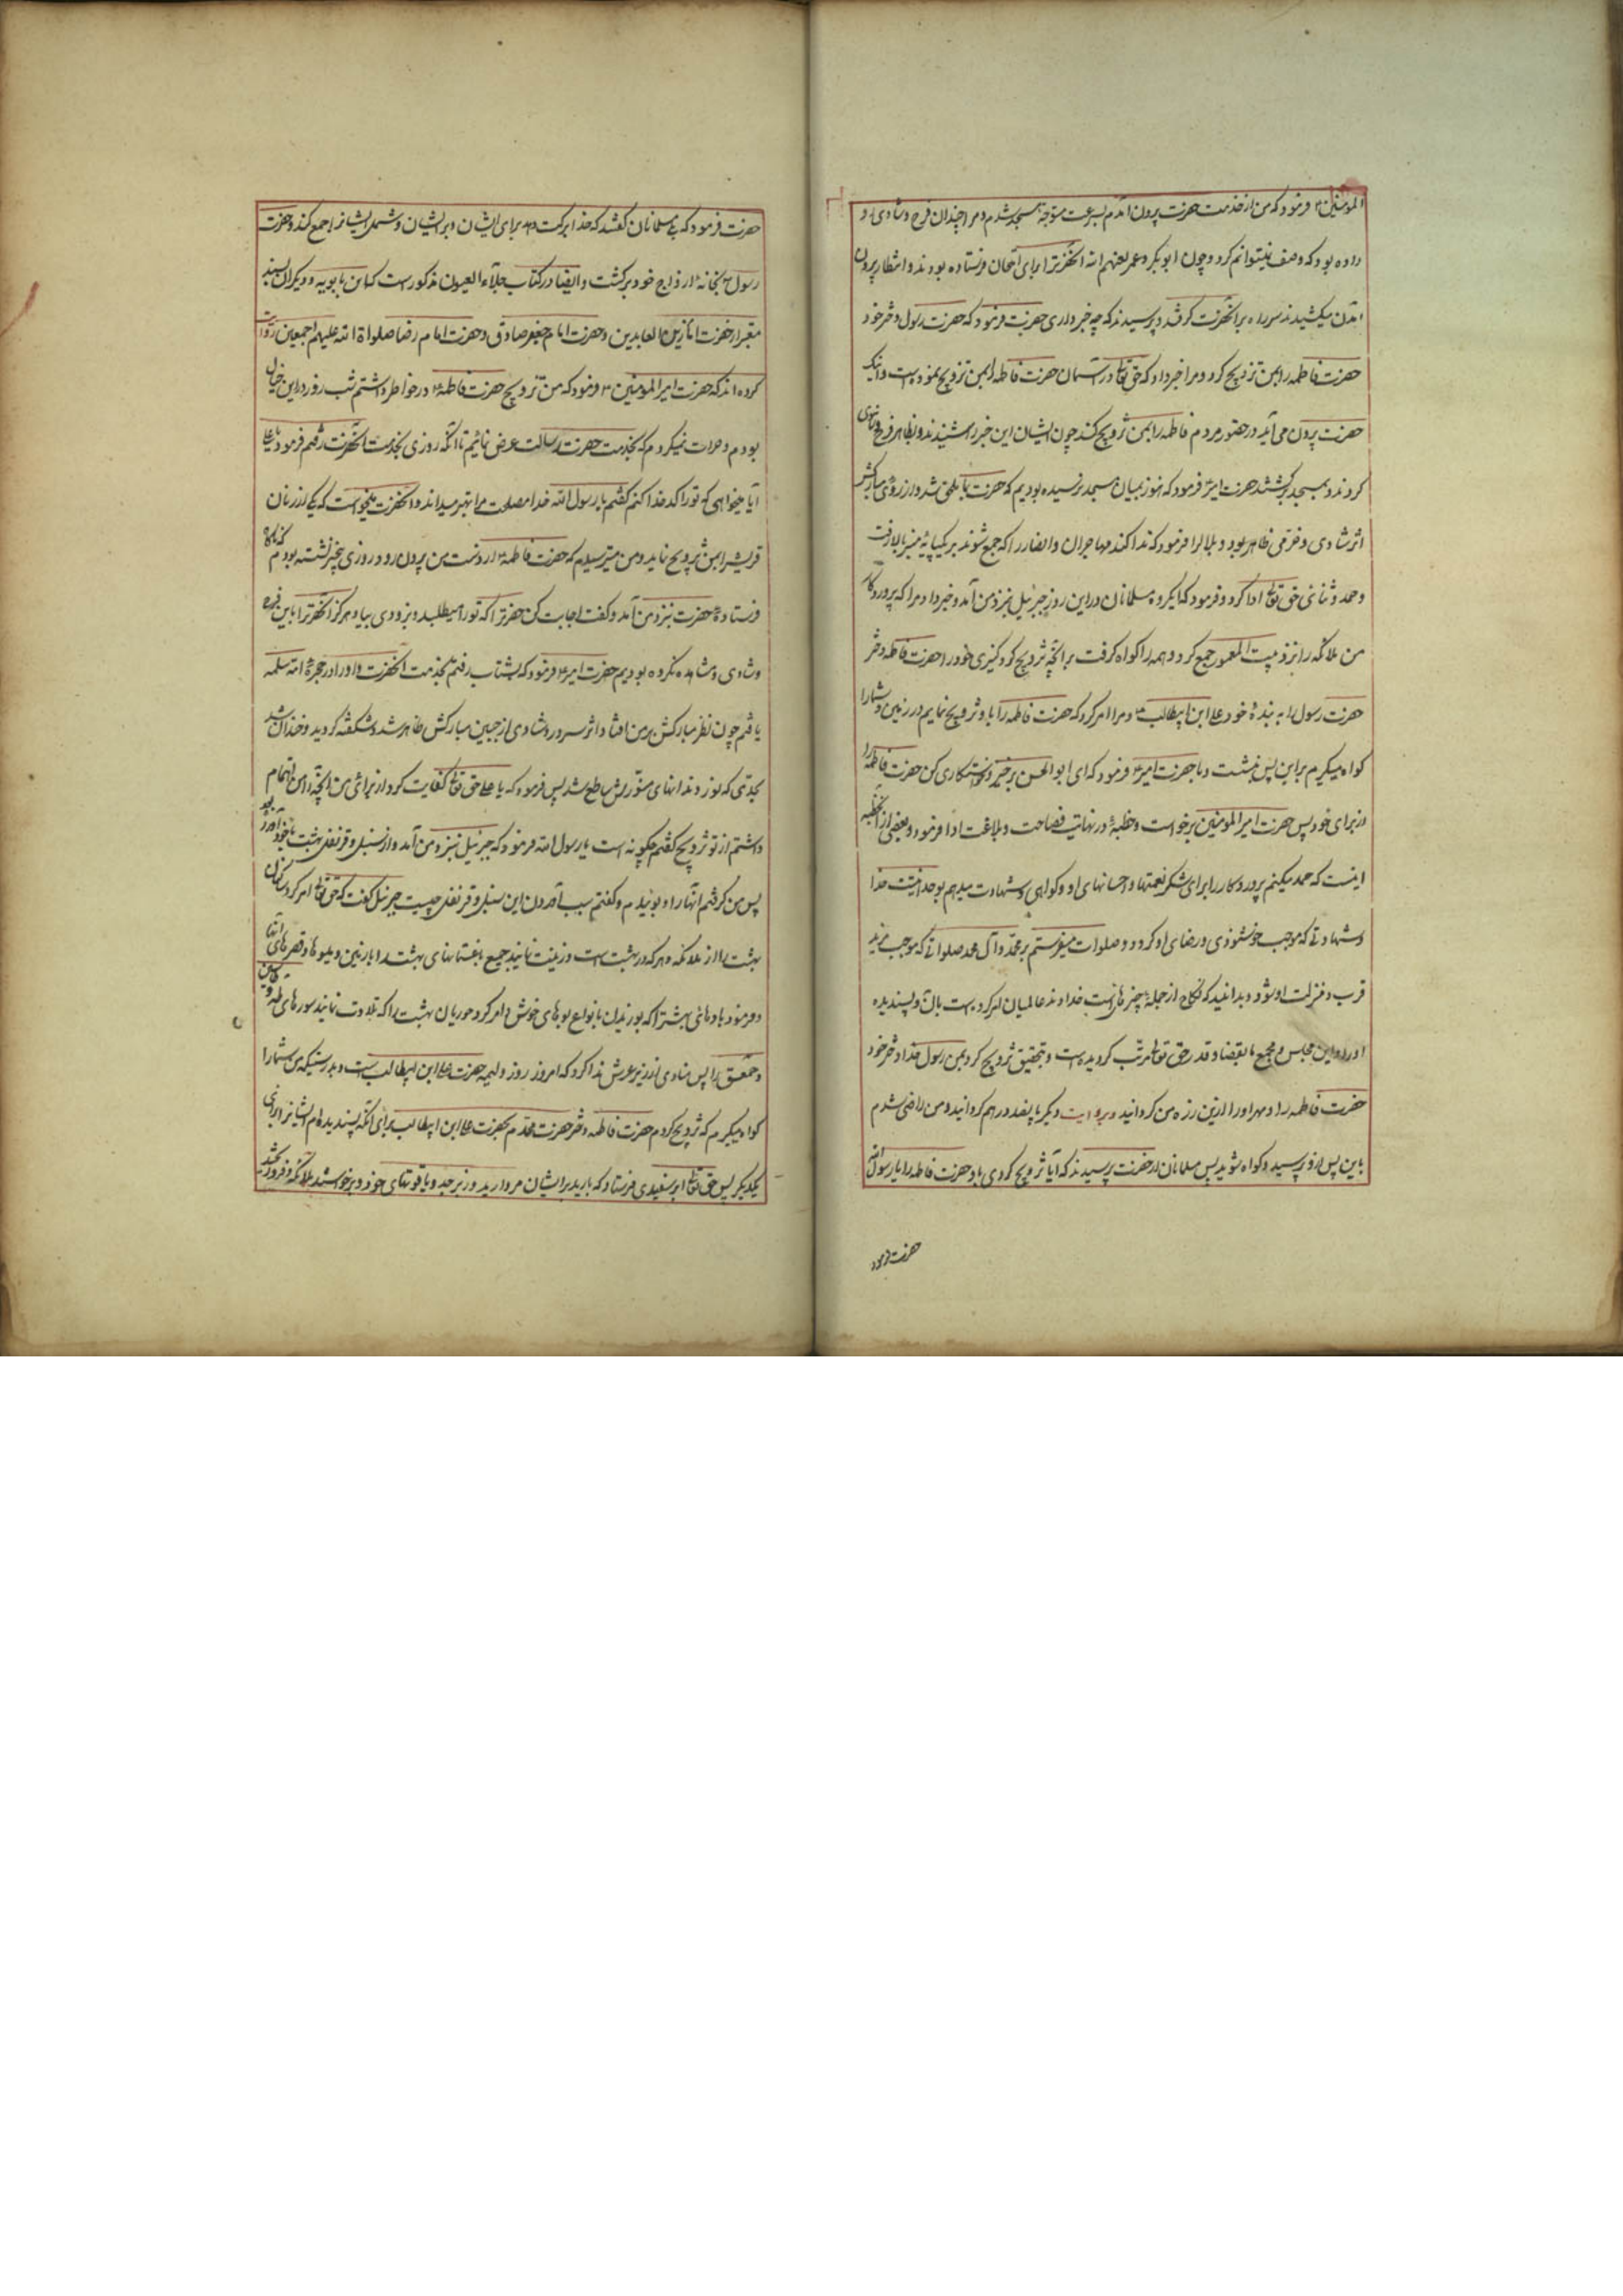 المومنین ۴ فرمود که من از خدمت حضرت بیرون آمدم بسرعت متوجه مسجد شدم و مرا چندان فرح و شادی رو
داده بود که وصف نمیتوانم کرد و چون ابوبکر و عمر لعنهم الله آنحضرترا برای امتحان فرستاده بودند و انتظار بیرون
آمدن میکشیدند سر راه بر آنحضرت گرفتند و پرسیدند که چه خبر داری حضرت فرمود که حضرت رسول دختر خود
حضرت فاطمه را بمن تزویج کرد و مرا خبر داد که حق تعالی در آسمان حضرت فاطمه را بمن تزویج نموده است و اینک
حضرت بیرون می آید در حضور مردم فاطمه را بمن تزویج کند چون ایشان این خبر را شنیدند بظاهر فرح و شادی
کردند و بمسجد برگشتند حضرت امیر ۴ فرمود که هنوز بمیان مسجد نرسیده بودیم که حضرت بما ملحق شد و از روی مبارکش
اثر شادی و خرمی ظاهر بود و بلال را فرمود که ندا کند مهاجران و انصار را که جمع شوند بر یکپایه منبر بالا رفت
و حمد و ثنای حق تعالی ادا کرد و فرمود که ایگروه مسلمانان در این روز جبرئیل نزد من آمد و خبر داد مرا که پروردگار
من ملائکه را نزد بیت المعمور جمع کرد و همه را گواه گرفت بر آنچه تزویج کرد کنیزی خود را حضرت فاطمه دختر
حضرت رسول را به بنده خود علی ابن ابیطالب ۴ و مرا امر کرد که حضرت فاطمه را باو تزویج نمایم در زمین و شما را
گواه میگیرم بر این پس نشست و با حضرت امیر ۴ فرمود که ای ابو الحسن برخیز و خواستگاری کن حضرت فاطمه را
از برای خود پس حضرت امیر المومنین برخواست و خطبه در نهایت فصاحت و بلاغت ادا فرمود و بعضی از آنخطبه
اینست که حمد میکنم پروردگار را برای شکر نعمتها و احسانهای او و گواهی و شهادت میدهم بوحدانیت خدا
و شهادتی که موجب خوشنودی و رضای او گردد و صلوات میفرستم بر محمد و آل محمد صلواتی که موجب مزید
قرب و منزلت او شود و بدانید که نکاح از جمله چیزهائیست خداوند عالمیان امر کرده است بآن و پسندیده
او را و این مجلس و مجمع بقضا و قدر حق تعالی مرتب گردیده است و بتحقیق تزویج کرد بمن رسول خدا دختر خود
حضرت فاطمه را و مهر او را از این زره من گردانید و بروایت دیگر پانصد درهم گردانید و من راضی شدم
باین پس از او پرسید و گواه شوید پس مسلمانان از حضرت پرسیدند که آیا تزویج کردی باو حضرت فاطمه را یا رسول الله
حضرت فرمود
حضرت فرمود که بلی مسلمانان گفتند که خدا برکت دهد برای ایشان و بر ایشان و شمل ایشانرا جمع کند و حضرت
رسول ص بخانه ازواج خود برگشت و ایضا در کتاب جلآء العیون مذکور است که ابن بابویه و دیگران بسند
معتبر از حضرت امام زین العابدین و حضرت امام جعفر صادق و حضرت امام رضا صلواة الله علیهم اجمعین روایت
کرده اند که حضرت امیر المومنین ۴ فرمود که من تزویج حضرت فاطمه ۴ در خواطر داشتم شب و روز در این خیال
بودم و جرات نمیکردم که بخدمت حضرت رسالت عرض نمائیم تا آنکه روزی بخدمت آنحضرت رفتم فرمود یا علی
آیا میخواهی که تو را کدخدا کنم گفتم یا رسول الله خدا مصلحت مرا بهتر میداند و آنحضرت میخواست که یکی از زنان
قریش را بمن تزویج نماید و من میترسیدم که حضرت فاطمه ۴ از دست من بیرون رود روزی بیخبر نشسته بودم که ناگاه
فرستاده حضرت بنزد من آمد و گفت اجابت کن حضرترا که تو را میطلبد و بزودی بیا و هرگز آنحضرترا باین فرح
و شادی مشاهده نکرده بودیم حضرت امیر ۴ فرمود که بشتاب رفتم بخدمت آنحضرت و او را در حجره ام سلمه
یافتم چون نظر مبارکش بر من افتاد اثر سرور و شادی از جبین مبارکش ظاهر شد و شکفته گردید و خندان شد
بحدی که نور دندانهای منورش ساطع شد پس فرمود که یا علی حق تعالی کفایت کرد از برای من آنچه را من اهتمام
داشتم از تو تزویج گفتم چگونه است یا رسول الله فرمود که جبرئیل نزد من آمد و از سنبل و قرنفل بهشت با خود آورده بود
پس من گرفتم آنها را و بوئیدم و گفتم سبب آمدن این سنبل و قرنفل چیست جبرئیل گفت که حق تعالی امر کرد ساکنان
بهشت را از ملائکه و هر که در بهشت است و زینت نمایند جمیع باغستانهای بهشت را با زمین و میوه ها و قصرهای آنها
و فرمود بادهای بهشترا که بوزیدن بانواع بوهای خوش و امر کرد حوریان بهشت را که تلاوت نمایند سورهای طه و یس
و حمعسق را پس منادی از زیر عرش ندا کرد که امروز روز ولیمه حضرت علی ابن ابیطالب است و بدرستیکه من شما را
گواه میگیرم که تزویج کردم حضرت فاطمه دختر حضرت محمد را بحضرت علی ابن ابیطالب برای آنکه پسندیده ام ایشانرا برای
یکدیگر پس حق تعالی ابر سفیدی فرستاد که بارید بر ایشان مروارید و زبرجد و یاقوتهای خود و برخواستند ملائکه و فرو ریختند